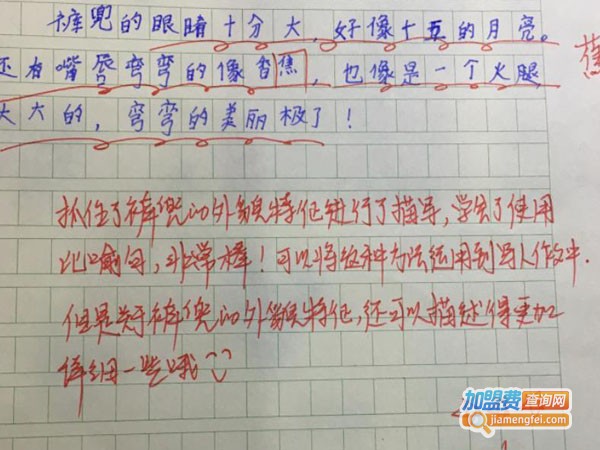 裤兜的眼睛十分大，好像十五的月亮。
还有嘴唇弯弯的像香焦，也像是一个火腿，
大大的，弯弯的美丽极了！
蕉
抓住了裤兜的外貌特征进行了描写，学会了使用
比喻句，非常棒！可以将这种方法运用到写人作文中．
但是关于裤兜的外貌特征，还可以描述得更加
详细一些哦
加盟费查询网
jiamengfei.com